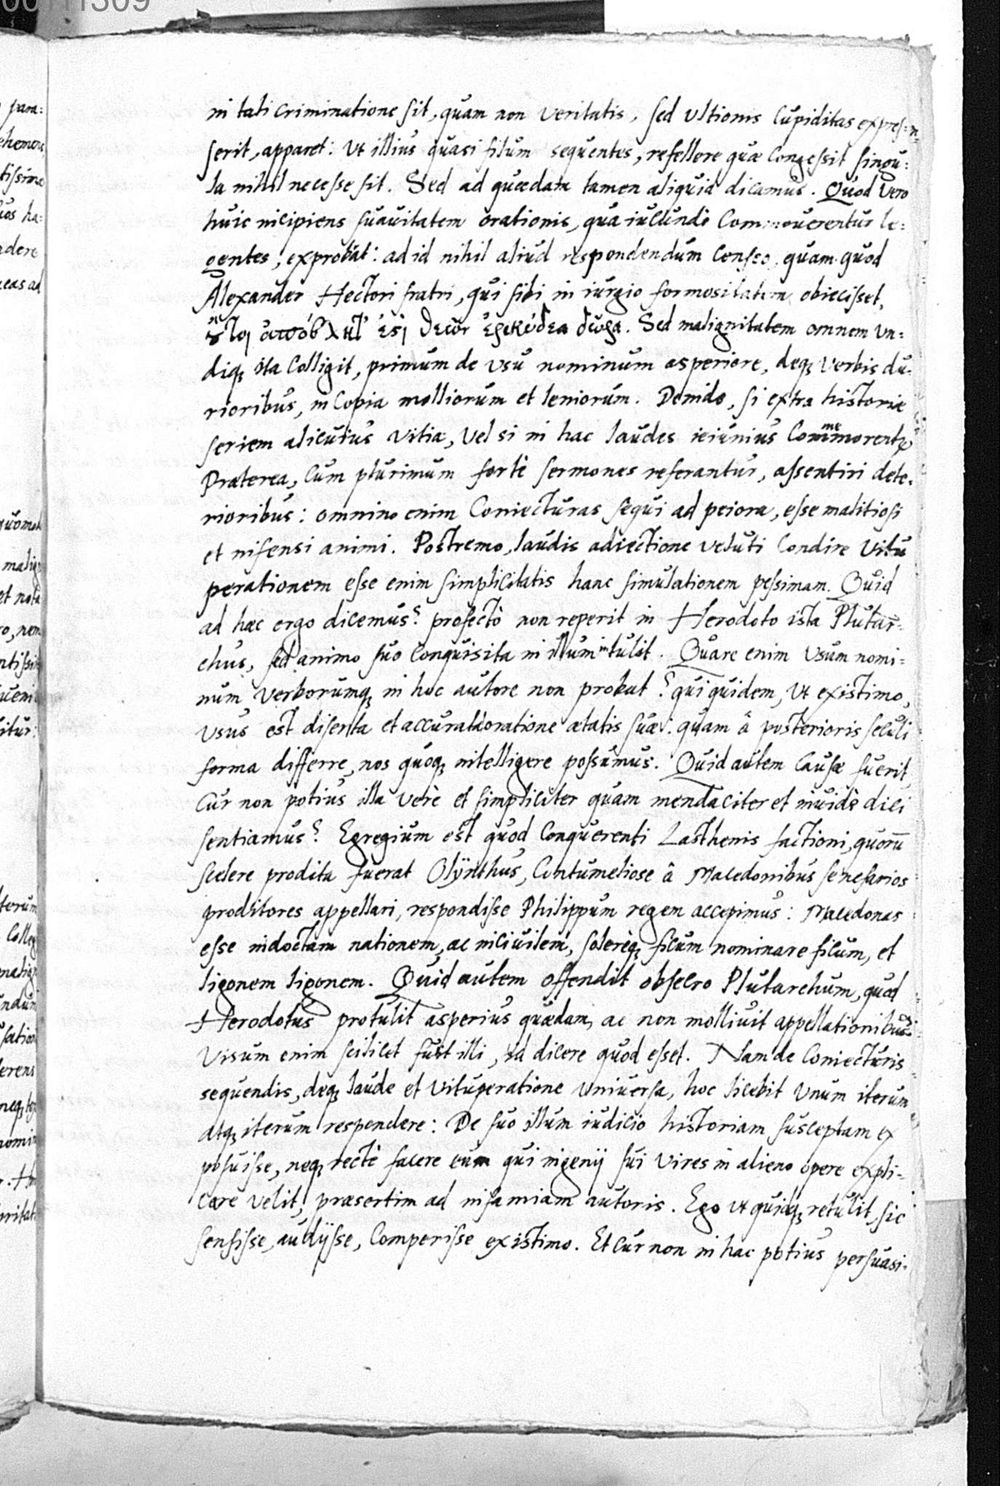 in tali criminatione sit, quam non veritatis, sed ultionis cupiditas expres-
serit, apparet: Ut illius quasi filum sequentes, refellere quæ congessit singu:
la nihil necesse sit. Sed ad quædam tamen aliquid dicamus. Quod vero
huic incipiens suavitatem orationis, qua iucundè commoverentur le:
gentes, exprobat: ad id nihil aliud respondendum censeo, quam quod
Alexander Hectori fratri, qui sibi in iurgio formositatem obiecisset,
ἐρικυδέα δῶρα. Sed malignitatem omnem un-
diq; ita colligit, primum de usu nominum asperiore, deq; verbis du-
rioribus, in copia molliorum et leniorum. Deinde, si extra historiæ
seriem alicuius vitia, vel si in hac laudes ieiunius commemorentur
Præterea, cum plurimum fortè sermones referantur, assentiri dete-
rioribus: omnino enim coniecturas sequi ad peiora, esse malitiosi
et infensi animi. Postremo, laudis adiectione veluti condire vitu
perationem esse enim simplicitatis hanc simulationem pessimam. Quid
ad hæc ergo dicemus? profectò non reperit in Herodoto ista Plutar-
chus, sed animo suo conquisita in illum intulit. Quare enim usum nomi-
num verborumq; in hoc autore non probat? qui quidem, ut existimo,
usus est diserta et accurata oratione ætatis suæ: quam â posterioris seculi
forma differre, nos quoq; intelligere possumus. Quid autem causæ fuerit
cur non potius illa verè et simpliciter quam mendaciter et invidè dici
sentiamus? Egregium est quod conquerenti Lasthenis factioni, quorū
scelere prodita fuerat Olÿnthus, contumeliose â Macedonibus se nefarios
proditores appellari, respondisse Philippum regem accepimus: Macedonas
esse indoctam nationem, ac incivilem, solereq; ficum nominare ficum, et
ligonem ligonem. Quid autem offendit obsecro Plutarchum, quod
Herodotus protulit asperius quædam, ac non mollivit appellationibus?
Visum enim scilicet fuit illi, id dicere quod esset. Nam de coniecturis
sequendis, deq; laude et vituperatione universa, hoc licebit unum iterum
atq; iterum respondere: De suo illum iudicio historiam susceptam ex
posuisse, neq; rectè facere eum qui ingenij sui vires in alieno opere expli-
care velit, præsertim ad infamiam autoris. Ego ut quidq; retulit, sic
sensisse, audÿsse, comperisse existimo. Et cur non in hac potius persuasi-